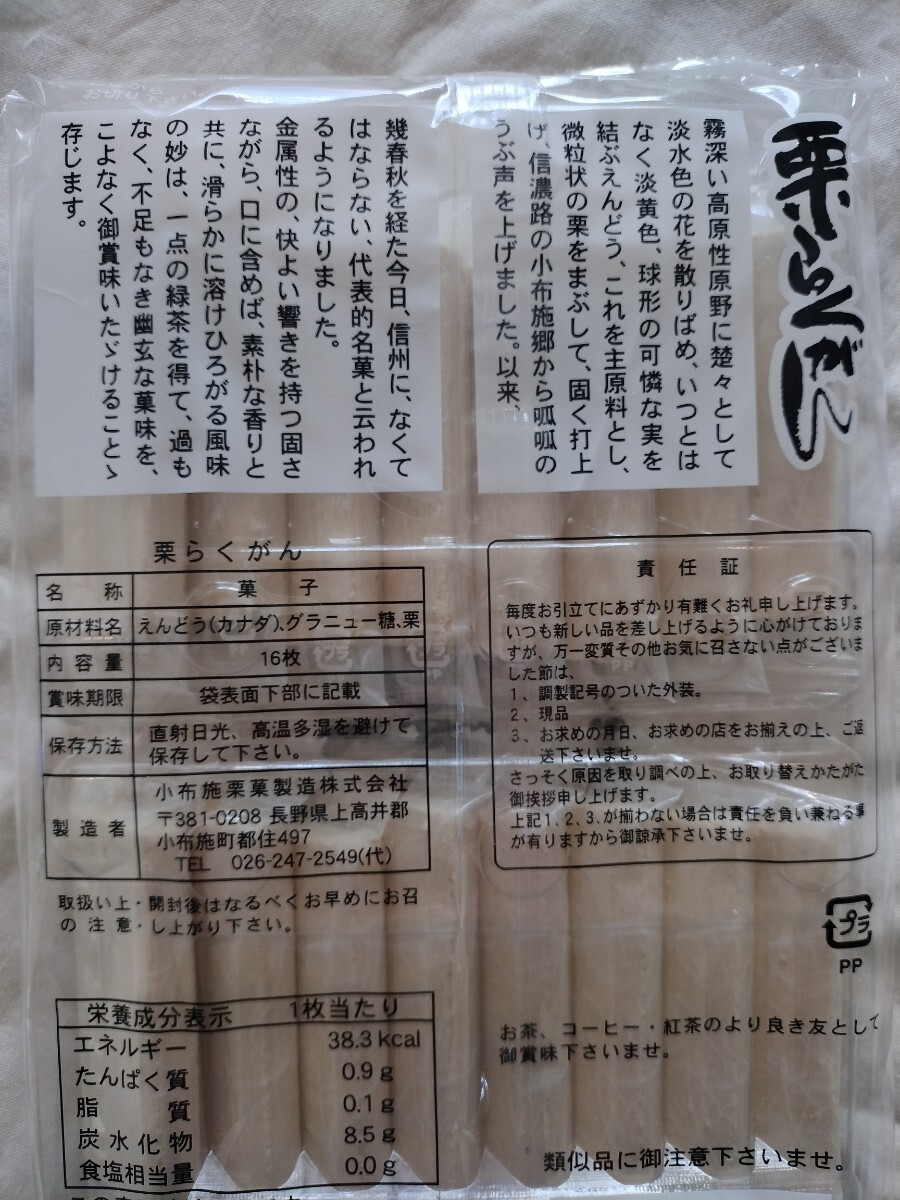 お切り下さい
栗らくがん
霧深い高原性原野に楚々として
淡水色の花を散りばめ、いつとは
なく淡黄色、球形の可憐な実を
結ぶえんどう、これを主原料とし、
微粒状の栗をまぶして、固く打上
げ、信濃路の小布施郷から呱呱の
うぶ声を上げました。以来、
幾春秋を経た今日、信州に、なくて
はならない、代表的名菓と云われ
るようになりました。
金属性の、快よい響きを持つ固さ
ながら、口に含めば、素朴な香りと
共に、滑らかに溶けひろがる風味
の妙は、一点の緑茶を得て、過も
なく、不足もなき幽玄な菓味を、
こよなく御賞味いたゞけることゝ
存じます。
栗らくがん
名称 菓子
原材料名 えんどう(カナダ)、グラニュー糖、栗
内容量 16枚
賞味期限 袋表面下部に記載
保存方法 直射日光、高温多湿を避けて
保存して下さい。
製造者 小布施栗菓製造株式会社
〒381-0208 長野県上高井郡
小布施町都住497
TEL 026-247-2549(代)
取扱い上・開封後はなるべくお早めにお召
の注意・し上がり下さい。
栄養成分表示 1枚当たり
エネルギー 38.3kcal
たんぱく質 0.9g
脂質 0.1g
炭水化物 8.5g
食塩相当量 0.0g
責任証
毎度お引立てにあずかり有難くお礼申し上げます。
いつも新しい品を差し上げるように心がけておりま
すが、万一変質その他お気に召さない点がございま
した節は、
1、調製記号のついた外装。
2、現品
3、お求めの月日、お求めの店をお揃えの上、ご返
送下さいませ。
さっそく原因を取り調べの上、お取り替えかたがた
御挨拶申し上げます。
上記1、2、3、が揃わない場合は責任を負い兼ねる事
が有りますから御諒承下さいませ。
プラ
PP
お茶、コーヒー・紅茶のより良き友として
御賞味下さいませ。
類似品に御注意下さいませ。